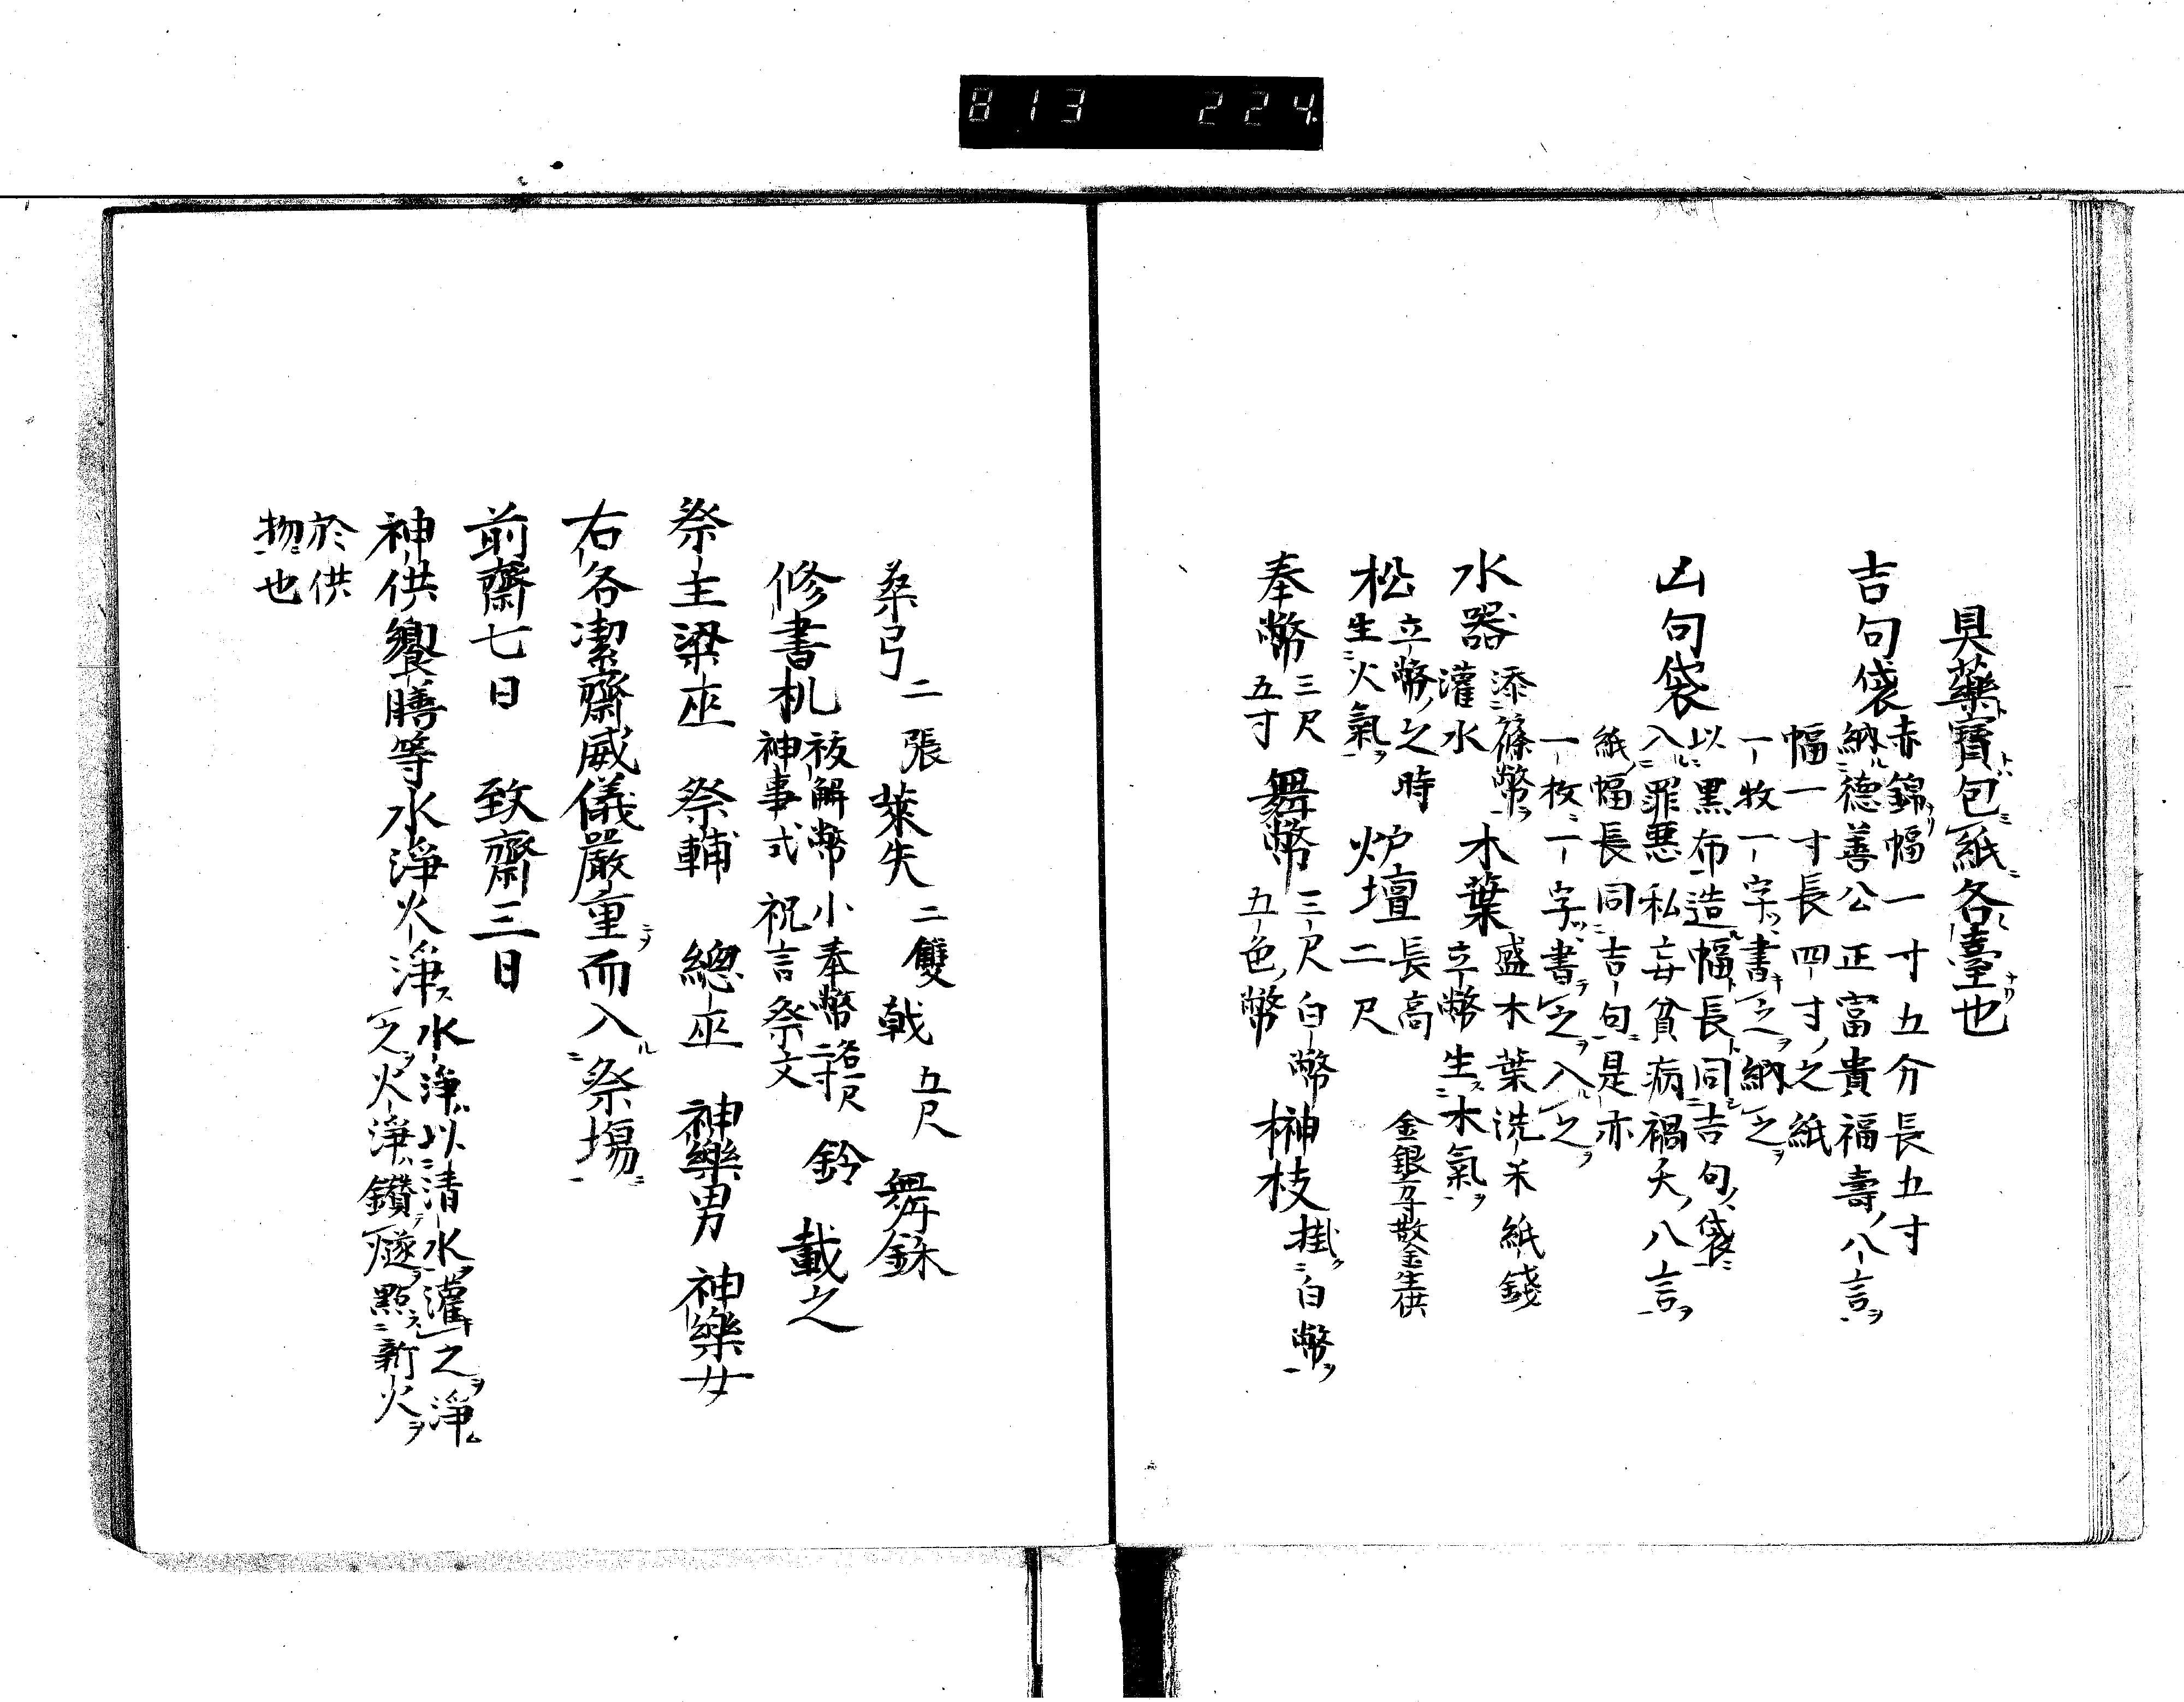 813 224
具藥寶包紙各臺也
吉句袋
赤錦幅一寸五分長五寸
納德善公正富貴福壽ノ八言ヲ
幅一寸長四寸ノ之紙
一牧一字ツヽ書キ之ヲ納之ヲ
凶句袋
以黒布造幅長同吉句ノ袋ニ
入罪惡私妄貧病禍夭ノ八言ヲ
紙ノ幅長同吉句ニ是亦
一枚ニ一字ツヽ書テ之ヲ入之ヲ
水器
添篠幣ヲ
灌水
木葉
盛木葉洗米紙錢
立幣生木氣ヲ
松
立幣之時
生火氣ヲ
炉壇
長高
二尺
金銀散金生供
奉幣
三尺
五寸
舞幣
三尺白幣
五色ノ幣
榊枝
掛ク白幣ヲ
桑弓
二張
萊矢
二雙
戟
五尺
舞銖
修書机
祓解幣小奉幣
神事式 祝言祭文
鈴
載之
祭主梁巫 祭輔 總巫 神樂男 神樂女
右各潔齋威儀嚴重ニヲ而入ル祭塲ニ
前齋七日 致齋三日
神供饗膳等水淨火淨ス
水淨ハ以清水ヲ灌キ之ヲ淨ム
之ヲ火淨ハ鑽テ燧ヲ點ス新火ヲ
於供
物ニ也